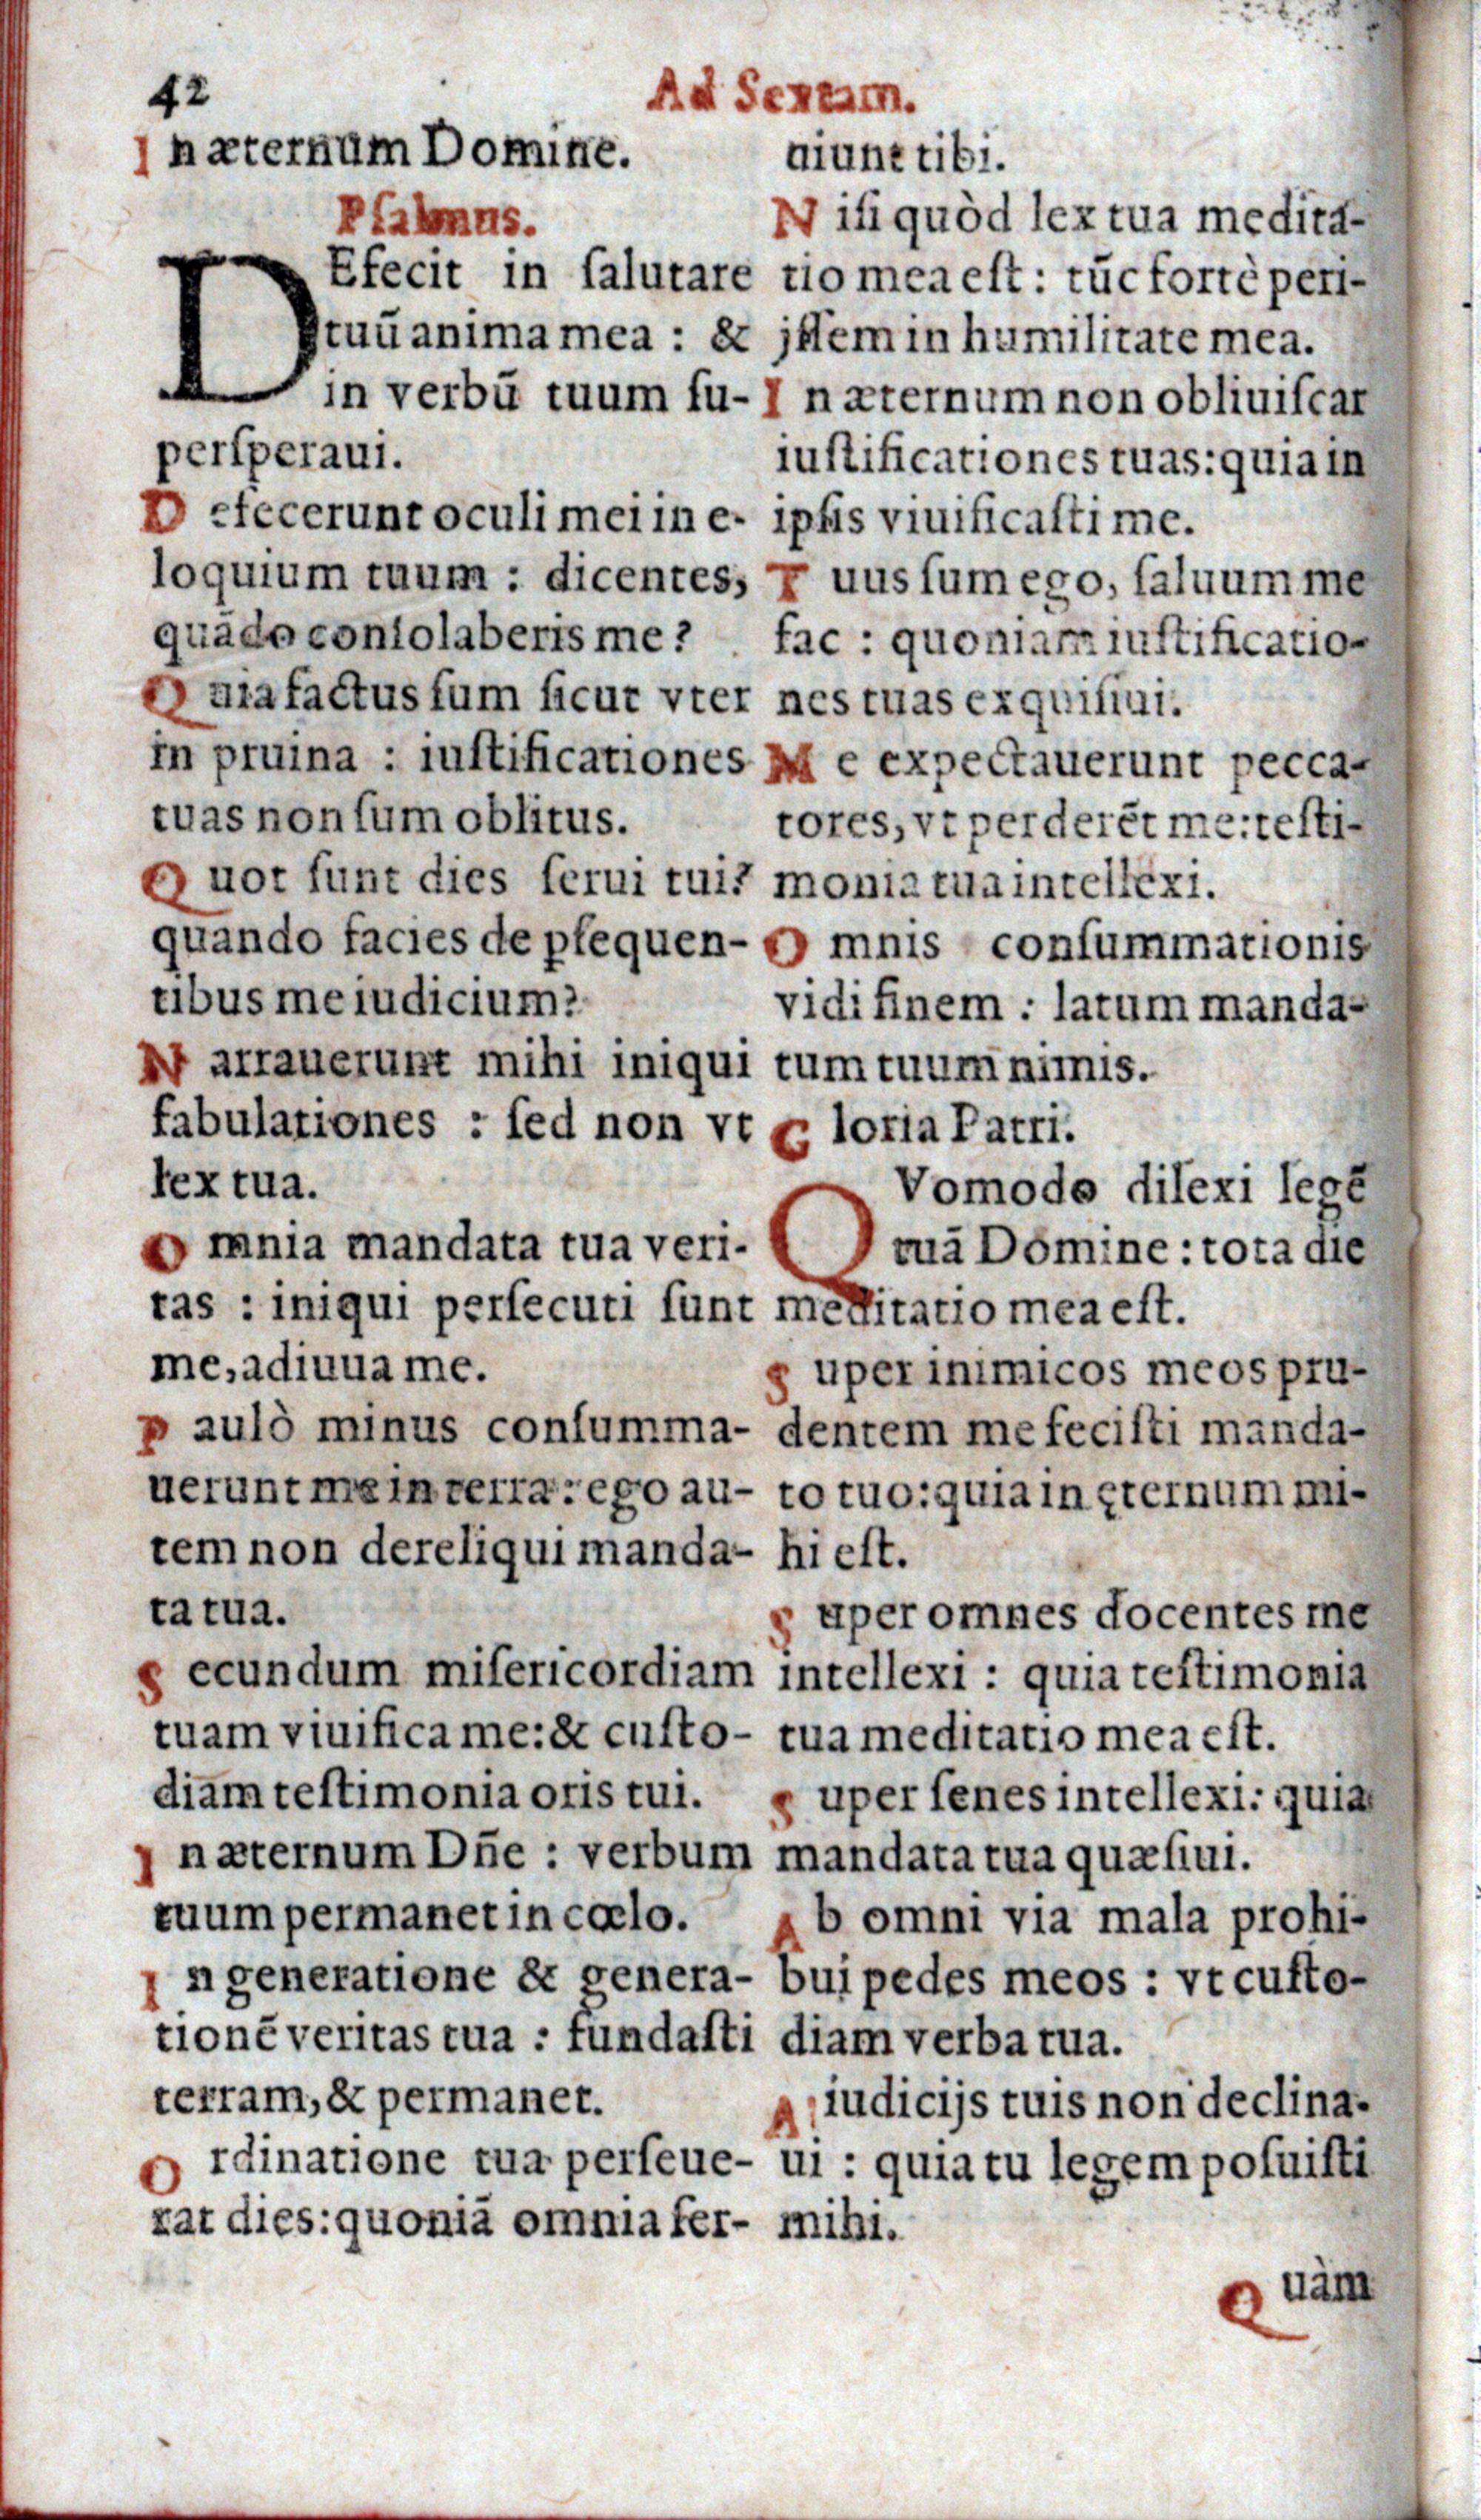 42
Ad Sextam.
In æternum Domine.
Pſalmus.
DEfecit in ſalutare
tuū anima mea : &
in verbū tuum ſu-
perſperaui.
Defecerunt oculi mei in e-
loquium tuum : dicentes,
quādo conſolaberis me ?
Quia factus ſum ſicut vter
in pruina : iuſtificationes
tuas non ſum oblitus.
Quot ſunt dies ſerui tui?
quando facies de ꝑſequen-
tibus me iudicium?
Narrauerunt mihi iniqui
fabulationes : ſed non vt
lex tua.
Omnia mandata tua veri-
tas : iniqui perſecuti ſunt
me, adiuua me.
Paulò minus conſumma-
uerunt me in terra : ego au-
tem non dereliqui manda-
ta tua.
Secundum miſericordiam
tuam viuifica me: & cuſto-
diam teſtimonia oris tui.
In æternum Dn̄e : verbum
tuum permanet in cœlo.
In generatione & genera-
tionē veritas tua : fundaſti
terram, & permanet.
Ordinatione tua perſeue-
rat dies: quoniā omnia ſer-
uiunt tibi.
Niſi quòd lex tua medita-
tio mea eſt : tūc fortè peri-
jſſem in humilitate mea.
In æternum non obliuiſcar
iuſtificationes tuas: quia in
ipſis viuificaſti me.
Tuus ſum ego, ſaluum me
fac : quoniam iuſtificatio-
nes tuas exquiſiui.
Me expectauerunt pecca-
tores, vt perderēt me: teſti-
monia tua intellexi.
Omnis conſummationis
vidi finem : latum manda-
tum tuum nimis.
Gloria Patri.
QVomodo dilexi legē
tuā Domine : tota die
meditatio mea eſt.
Super inimicos meos pru-
dentem me feciſti manda-
to tuo: quia in ęternum mi-
hi eſt.
Super omnes docentes me
intellexi : quia teſtimonia
tua meditatio mea eſt.
Super ſenes intellexi: quia
mandata tua quæſiui.
Ab omni via mala prohi-
bui pedes meos : vt cuſto-
diam verba tua.
A iudicijs tuis non declina-
ui : quia tu legem poſuiſti
mihi.
Quàm